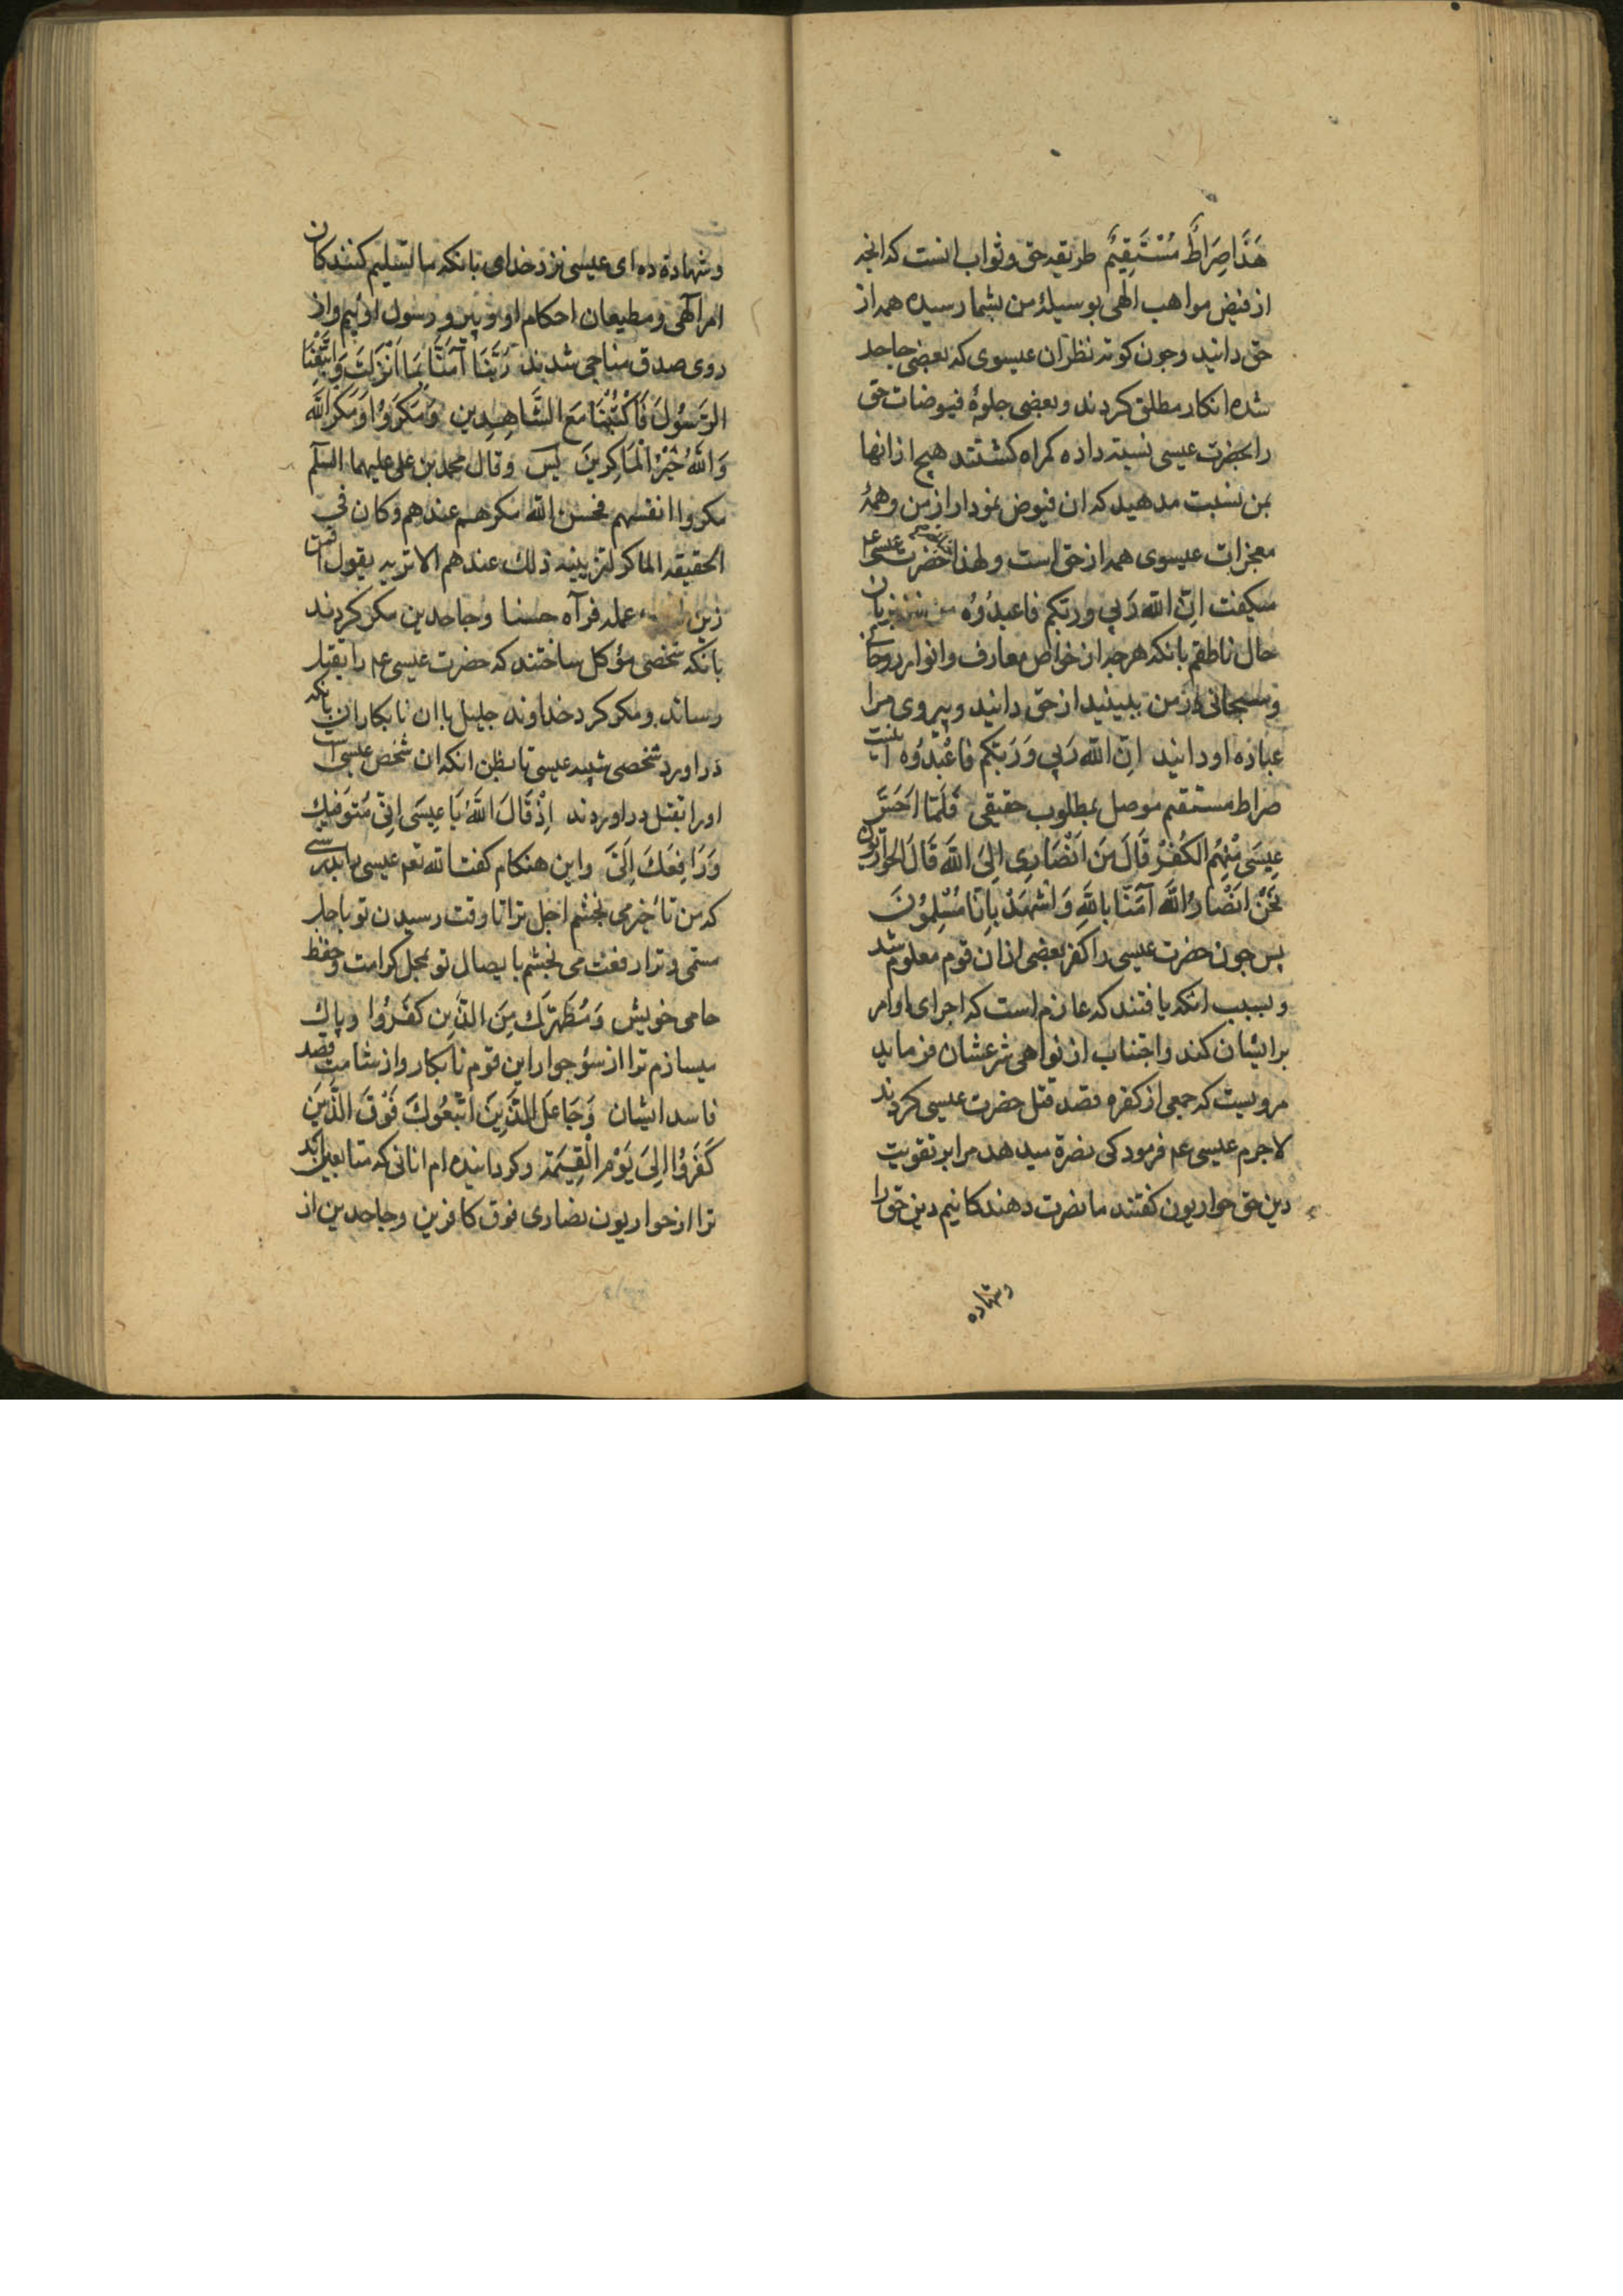 هَذَا صِرَاطٌ مُسْتَقِيمٌ طریقه حق و ثواب انست که انچه
از فیض مواهب الهی بوسیلهٔ من بشما رسیده همه از
حق دانید و چون کوته نظران عیسوی که بعضی جاحد
شده انکار مطلق کردند و بعضی جلوهٔ فیوضات حق
را بحضرت عیسی نسبت داده کمراه کشتند هیچ از انها
بمن نسبت مدهید که ان فیوض نمودار از من و همهٔ
معجزات عیسوی همه از حق است و لهذا حضرت عیسی عم
میکفت انّ الله رَبي و ربکم فاعبدُوُه بزبان
حال ناطقم بانکه هر چه از خواص معارف و انوار روحانی
و سبحانی از من ببینید از حق دانید و پیروی مرا
عبادة او دانید انّ الله رَبي وَ رَبکم فاعْبُدُوُه اینست
صراط مستقیم موصل بمطلوب حقیقی فَلَمّا اَحَسَّ
عِيسَى مْنِهُم الكُفْرَ قَالَ مَن اَنْصَارِي اِلىَ اللهِ قَالَ الحَواريّون
نَحْنُ اَنْصَارُ اللهِ آمَنّا بِاللهِ وَ اشْهَدْ بِاَنّا مُسْلِمُونَ
پس چون حضرت عیسی را کفر بعضی از ان قوم معلوم شد
و بسبب انکه یافتند که عازم است که اجرای اوامر
بر ایشان کند و اجتناب از نواهی شرعشان فرماید
مرویست که جمعی از کفره قصد قتل حضرت عیسی کردند
لاجرم عیسی عم فرمود کی نصرة میدهد مرا بر تقویت
دین حق حواریون کفتند ما نصرت دهندکانیم دین حق را
و شهاده
و شهادة ده ای عیسی نزد خدای بانکه ما تسلیم کنندکان
امر الهی و مطیعان احکام او و پیرو رسول اوئیم و از
روی صدق مناجی شدند رَبَّنَا آمَنَّا بِمَا اَنْزَلْتَ وَاتَّبَعْنَا
الرَّسُولَ فَاَكْتُبْنَا مَعَ الشَّاهِدِينَ وَمَكَرَوُا وَمَكَرَ اللهُ
وَاللهُ خَيْرُ الْمَاكِرِينَ وقال محمد بن علی علیهما السلم
مکروا انفسهم فحسن الله مکرهم عندهم و کان فی
الحقیقه الماکر لتزیینه ذلك عندهم الا تریه یقول افمن
زین عمله فرآه حسنا و جاحدین مکر کردند
بانکه شخصی مؤکل ساختند که حضرت عیسی عم را بقتل
رساند و مکر کرد خداوند جلیل با ان نابکاران بانکه
در اورد شخصی شبیه عیسی تا بظن انکه ان شخص عیسی است
او را بقتل در اوردند اِذْ قَالَ اللهُ يَا عِيسَى اِنّي مُتَوَفّيكَ
وَرَافِعُكَ اِلَيَّ و این هنکام کفت الله تعم عیسی را بدرستی
که من تأخیر می بخشم اجل ترا تا وقت رسیدن تو باجل
مسمی و ترا رفعت می بخشم بایصال تو بمحل کرامت و حفظ
حامی خویش وَمُطَهِّرُكَ مِنَ الَّذِينَ كَفَرُوُا و پاك
میسازم ترا از سؤ جوار این قوم نابکار و از شئامت قصد
فاسد ایشان وَجَاعِلُ الَّذِينَ اتَّبَعُوكَ فَوْقَ الَّذِينَ
كَفَرُوُا اِلىَ يَوْمِ الْقِيَمَةِ و کردانیده ام انانی که متابعین اند
ترا از حواریون نصاری فوق کافرین و جاحدین از